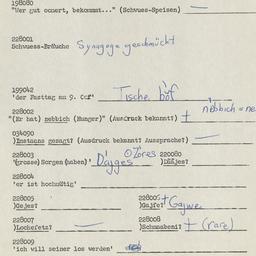 198080
"Wer gut ooert, bekommt..." (Schwues-Speisen) —
228001
Schwuess-Bräuche Synagoge geschmückt
199042
'der Fasttag am 9. Ocf' Tische bof
228002 nebbich = ne
"(Er hat) nebbich (Hunger)" (Ausdruck bekannt?) +
034090
)Instans gesagt? (Ausdruck bekannt? Aussprache?) —
228003 Zores 220080
'(grosse) Sorgen (haben)' Dajges )Dâjes?
228004
'er ist hochmütig'
228005 228006 +
)Gejes? )Gajfe? Gajwe
228007 228008
)Lochefetz? — )Schumabeni? + (rare)
228009
'ich will seiner los werden'